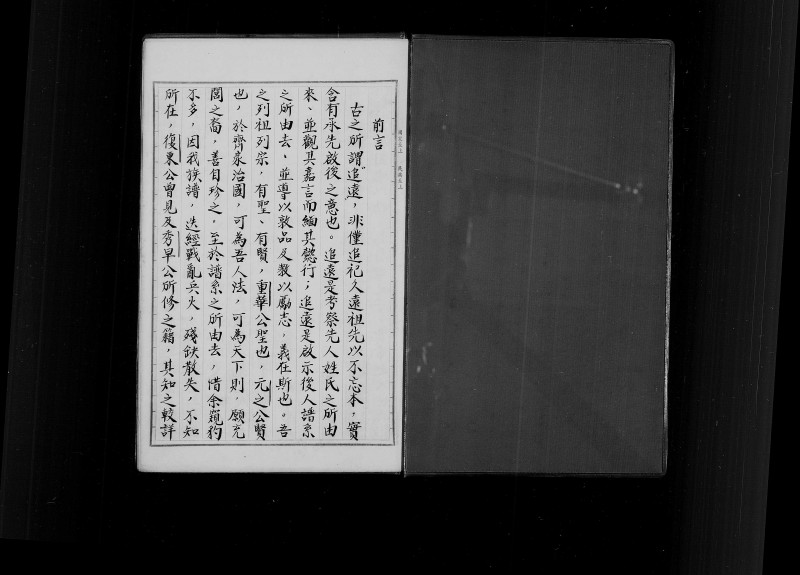 前言
古之所謂"追遠"，非僅追祀久遠祖先以不忘本，實
含有承先啟後之意也。追遠是考祭先人姓氏之所由
來、並觀其嘉言而緬其懿行；追遠是啟示後人譜系
之所由去、並導以敦品及教以勵志，義在斯也。吾
之列祖列宗，有聖、有賢，重華公聖也，元之公賢
也，於齊家治國，可為吾人法，可為天下則，願允
閣之裔，善自珍之。至於譜系之所由去，惜余窺豹
不多，因我族譜，迭經戰亂兵火，殘缺散失，不知
所在，復東公曾見及秀早公所修之籍，其知之較詳